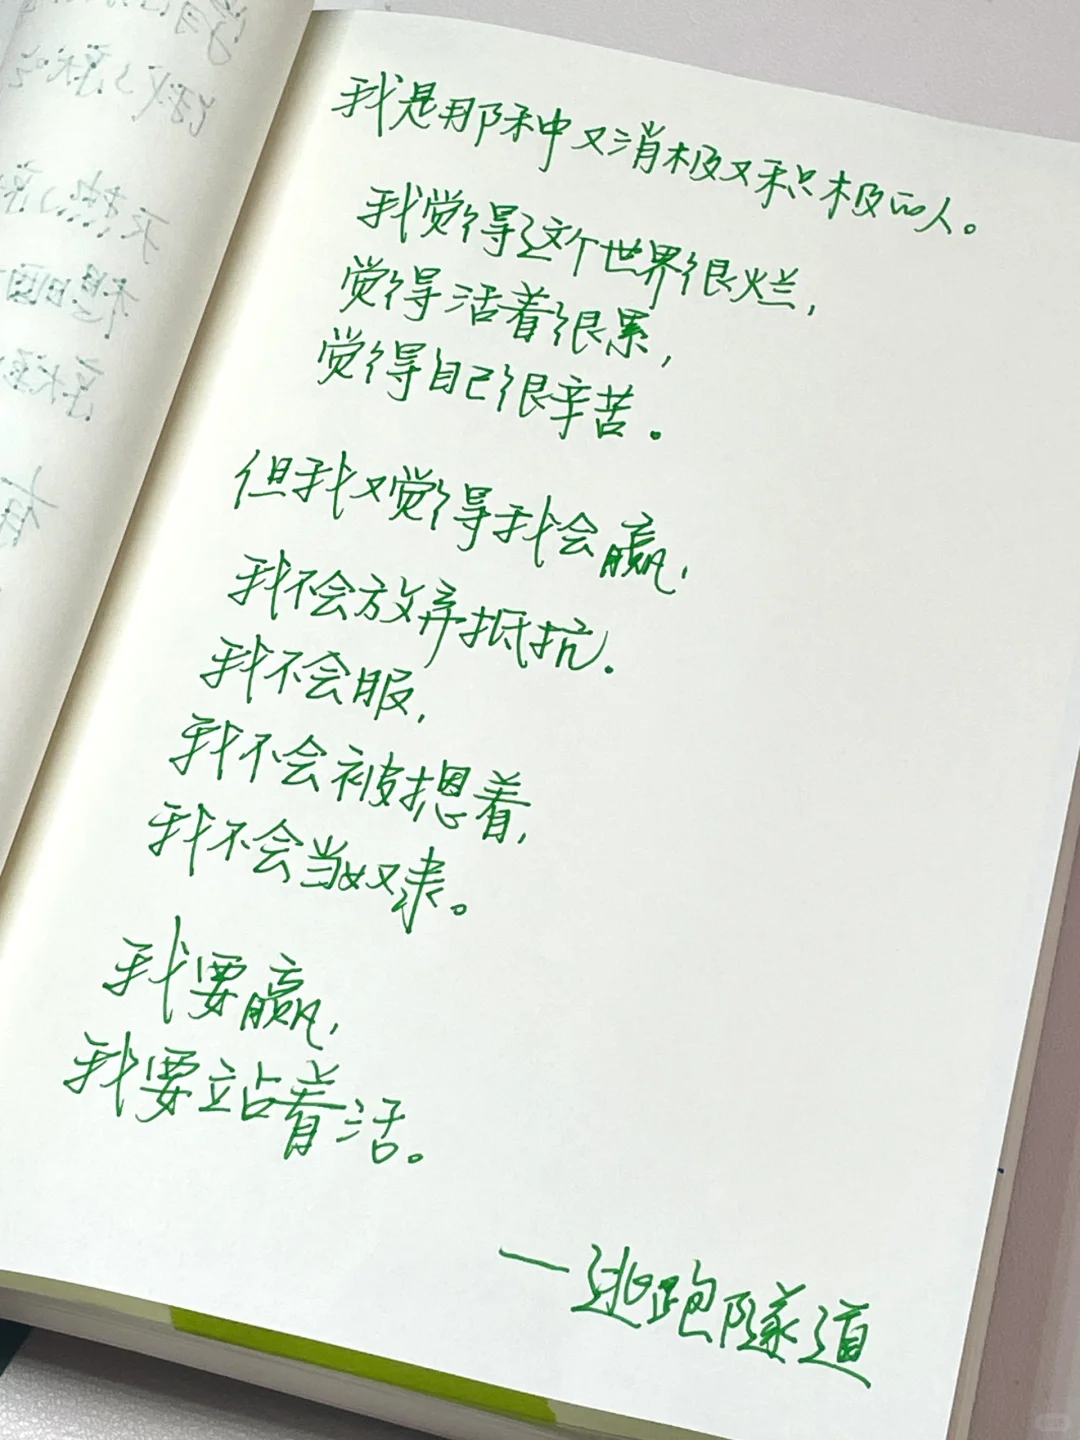 我是那种又消极又积极的人。
我觉得这个世界很烂,
觉得活着很累,
觉得自己很辛苦。
但我又觉得我会赢,
我不会放弃抵抗.
我不会服,
我不会被摁着,
我不会当奴隶。
我要赢,
我要站着活。
—逃跑隧道